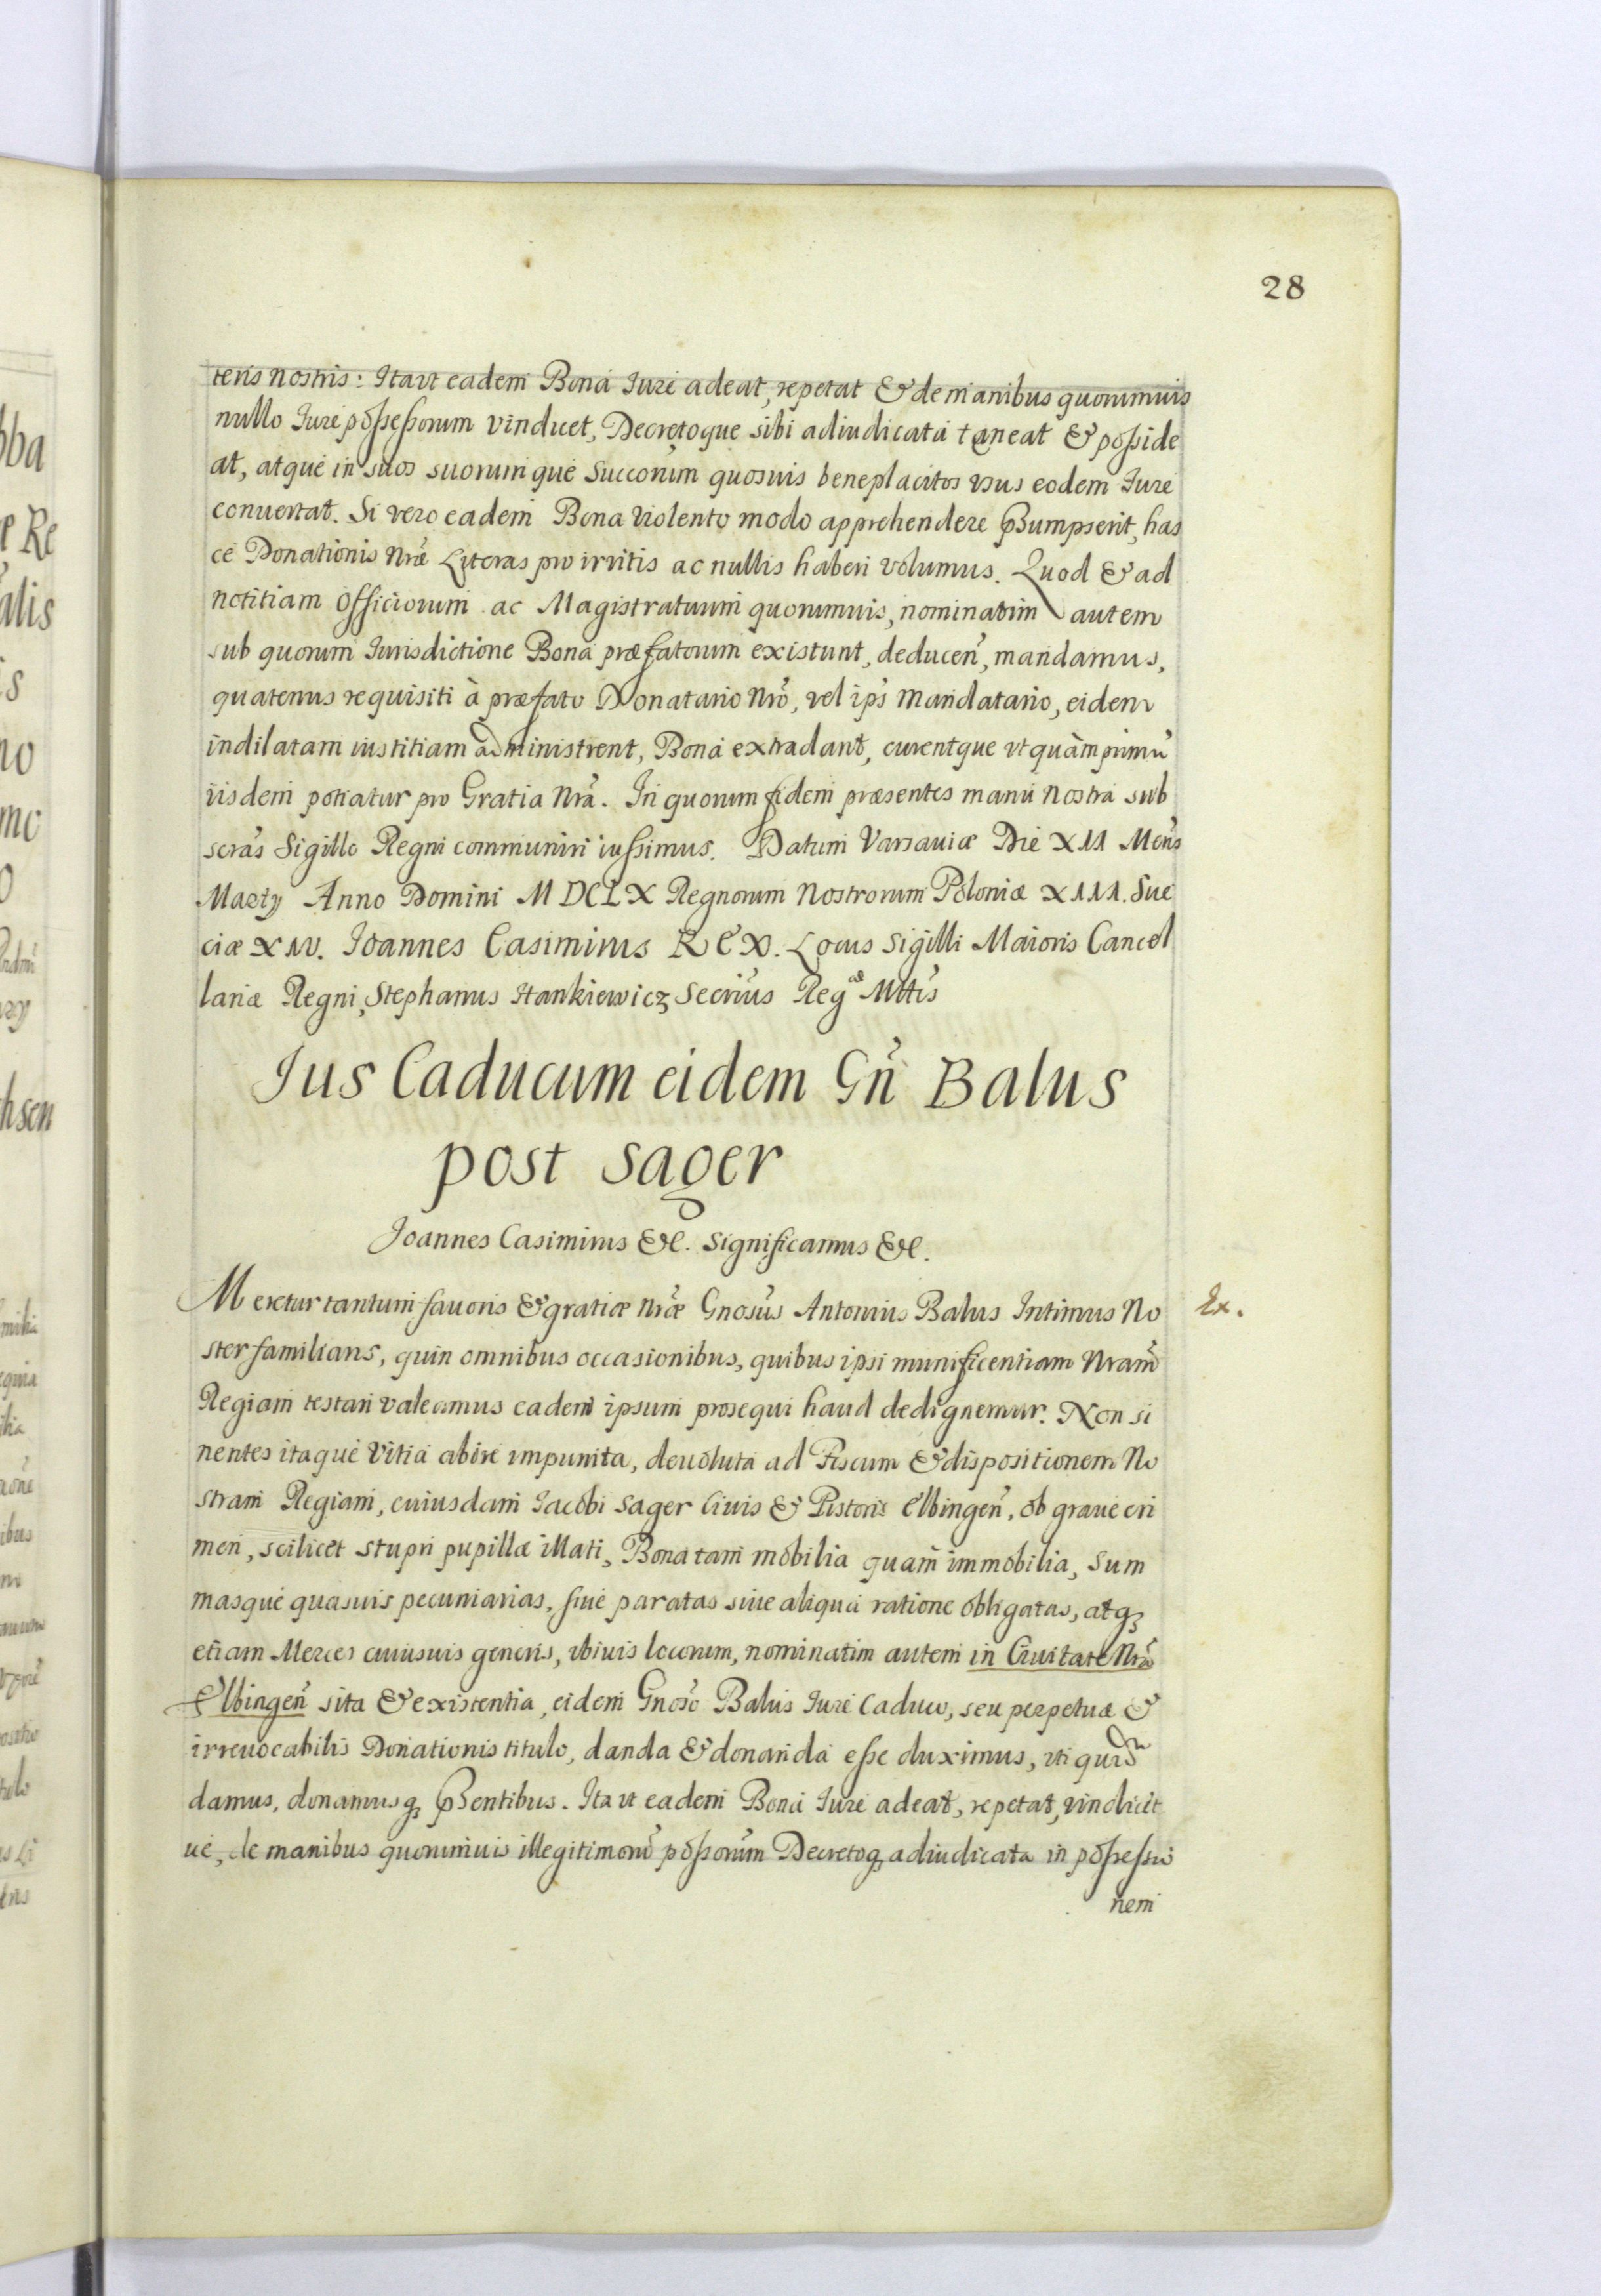 28
teris nostris: Ita vt eadem Bona Iure adeat, repetat & de manibus quorumuis
nullo Iure possessorum vindicet, Decretoque sibi adiudicata teneat & posside
at, atque in suos suorumque Succorum quosuis beneplacitos vsus eodem Iure
conuertat. Si vero eadem Bona violento modo apprehendere pßumpserit, has
ce Donationis Nræ Literas pro irritis ac nullis haberi volumus. Quod & ad
notitiam Officiorum ac Magistratuum quorumuis, nominatim autem
sub quorum Iurisdictione Bona præfatorum existunt, deducen, mandamus,
quatenus requisiti à præfato Donatario Nro, vel ips Mandatario, eidem
indilatam iustitiam administrent, Bona extradant, curentque vt quàm primu
iisdem potiatur pro Gratia Nra. In quorum fidem præsentes manu Nostra sub
scras Sigillo Regni communiri iussimus. Datum Varsauiæ Die XII Mens
Martij Anno Domini MDCLX Regnorum Nostrorum Poloniæ XIII. Sue
ciæ XIV. Ioannes Casimirus REX. Locus Sigilli Maioris Cancel
lariæ Regni, Stephanus Hankiewicz Secrius Reg Mttis
Ius Caducum eidem Gn Balus
post Sager
Ioannes Casimirus &c. Significamus &c.
Meretur tantum fauoris & gratiæ Nræ Gnosus Antonius Balus Intimus No
ster familiaris, quin omnibus occasionibus, quibus ipsi munificentiam Nram
Regiam testari valeamus eadem ipsum prosequi haud dedignemur. Non si
nentes itaque vitia abire impunita, deuoluta ad Fiscum & dispositionem No
stram Regiam, cuiusdam Iacobi Sager Ciuis & Pistoris Elbingen, ob graue cri
men, scilicet stupri pupillæ illati, Bona tam mobilia quam immobilia, Sum
masque quasuis pecuniarias, siue paratas siue aliqua ratione obligatas, atq
etiam Merces cuiusuis generis, vbiuis locorum, nominatim autem in Ciuitate Nra
Elbingen sita & existentia, eidem Gnoso Balus Iure Caduco, seu perpetuæ &
irreuocabilis Donationis titulo, danda & donanda esse duximus, vti quidem
damus, donamusq pßentibus. Ita vt eadem Bona Iure adeat, repetat, vindicet
ue, de manibus quorumuis illegitimoru possorum Decretoq adiudicata in possessio
nem
Ex.